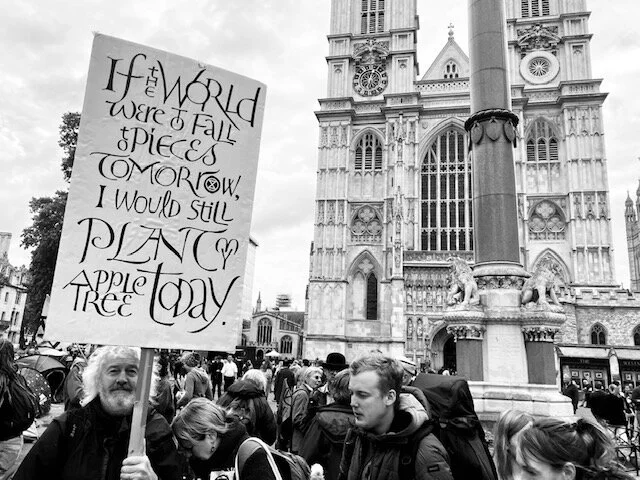 If THE WORLD
WERE to FALL
to PIECES
TOMORROW,
I WOULD STILL
PLANT MY
APPLE TREE today.